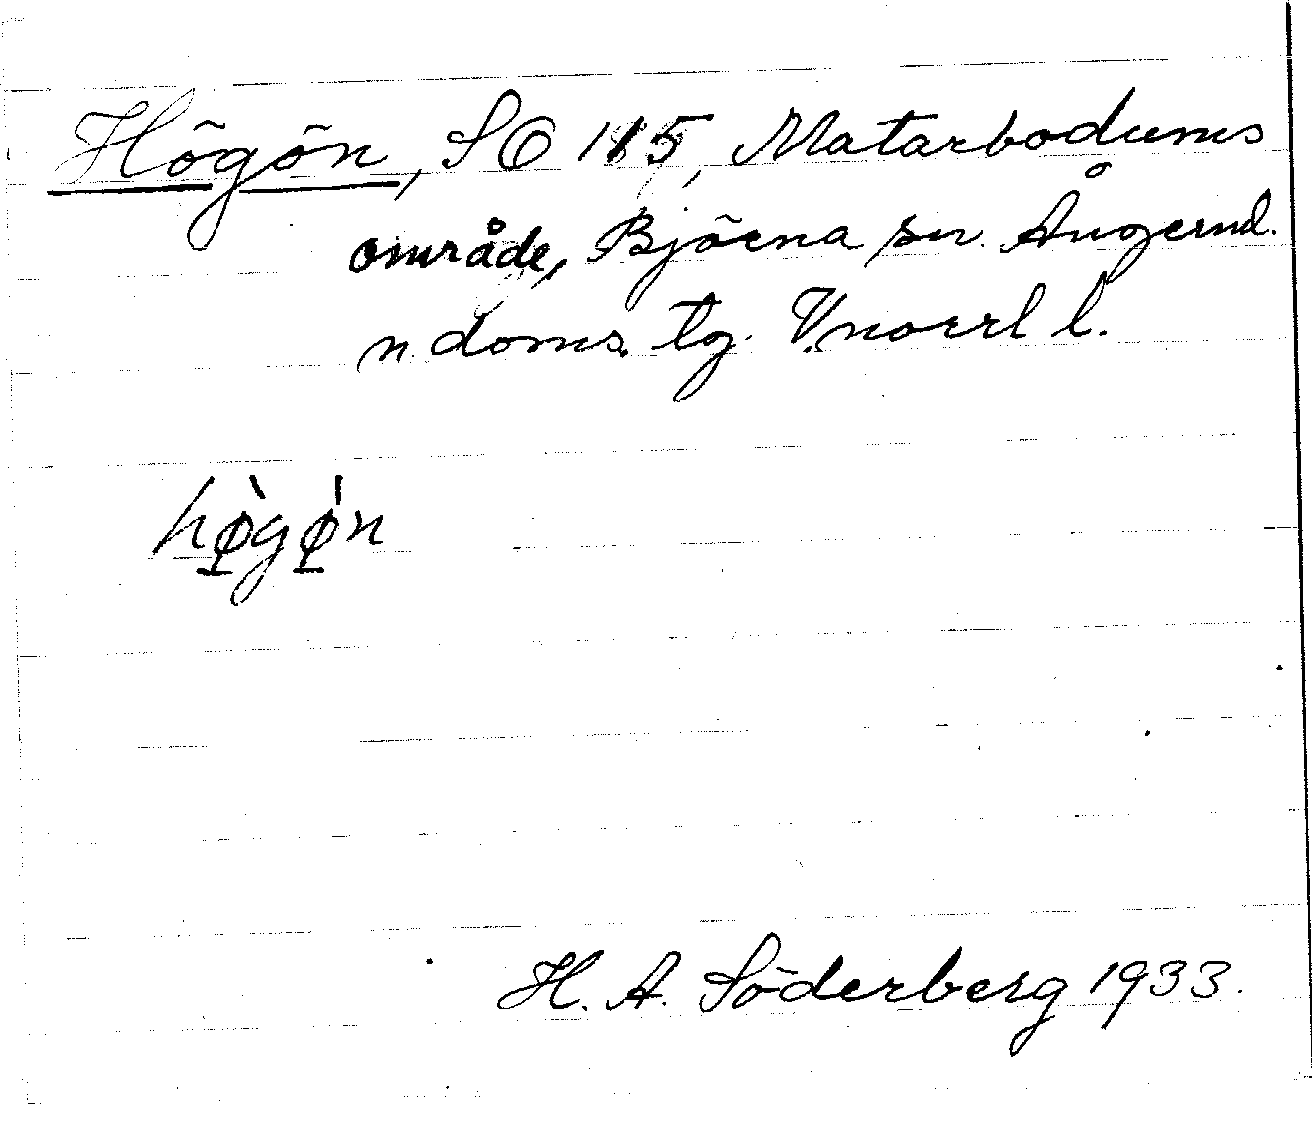 Högön, SO 115, Matarbodums
område, Björna sn. Ångerml.
n. doms. tg. V.norrl l.
hø̀gø̍n
H. A. Söderberg 1933.